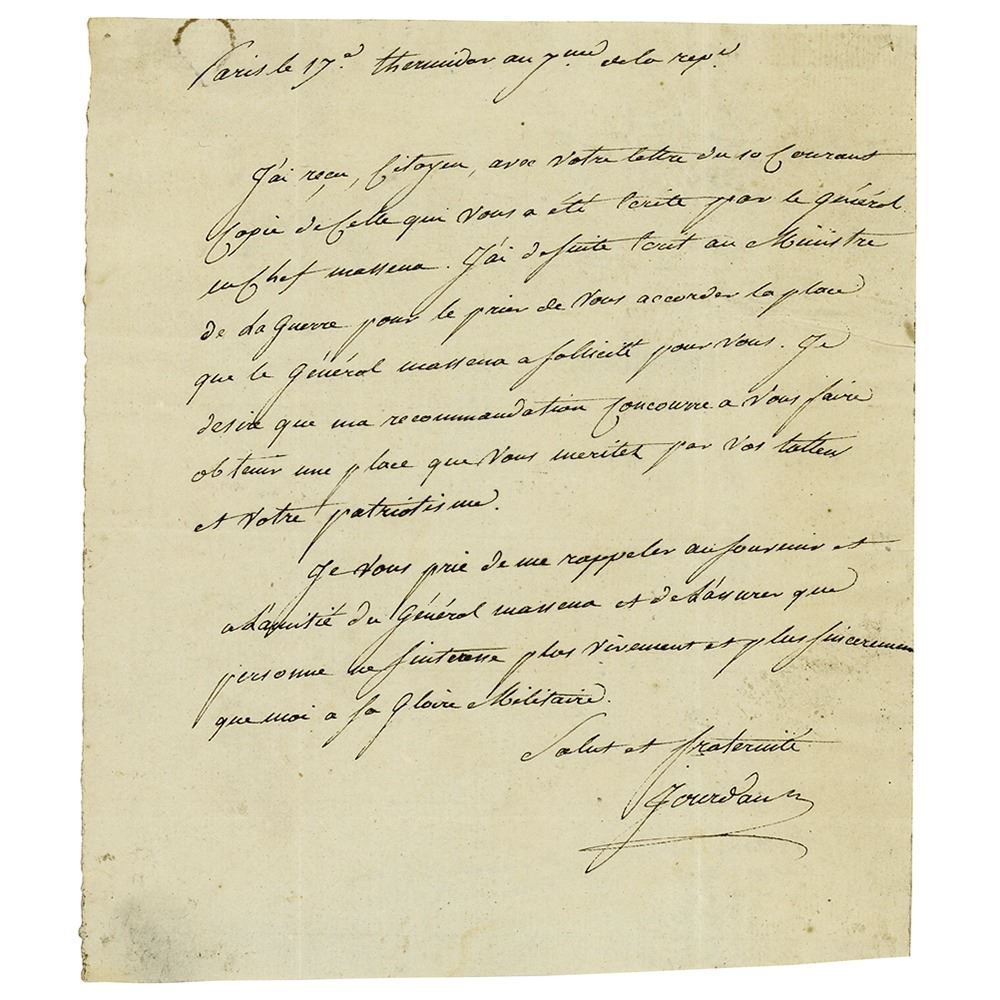 Paris le 17.e thermidor an 7.me de la rep.e
J'ai reçu, Citoyen, avec votre lettre du 10 Courant
Copie de Celle qui vous a été Ecrite par le Général
en Chef massena. J'ai de suite Ecrit au Ministre
de La Guerre pour le prier de vous accorder la place
que le Général massena a sollicité pour vous. Je
desire que ma recommandation Concourre a vous faire
obtenir une place que vous meritez par vos tallens
et votre patriotisme.
Je vous prie de me rappeler au souvenir et
a L'amitié du Général massena et de L'assurer que
personne ne s'interesse plus vivement et plus sincerement
que moi a sa Gloire Militaire.
Salut et fraternité
Jourdan